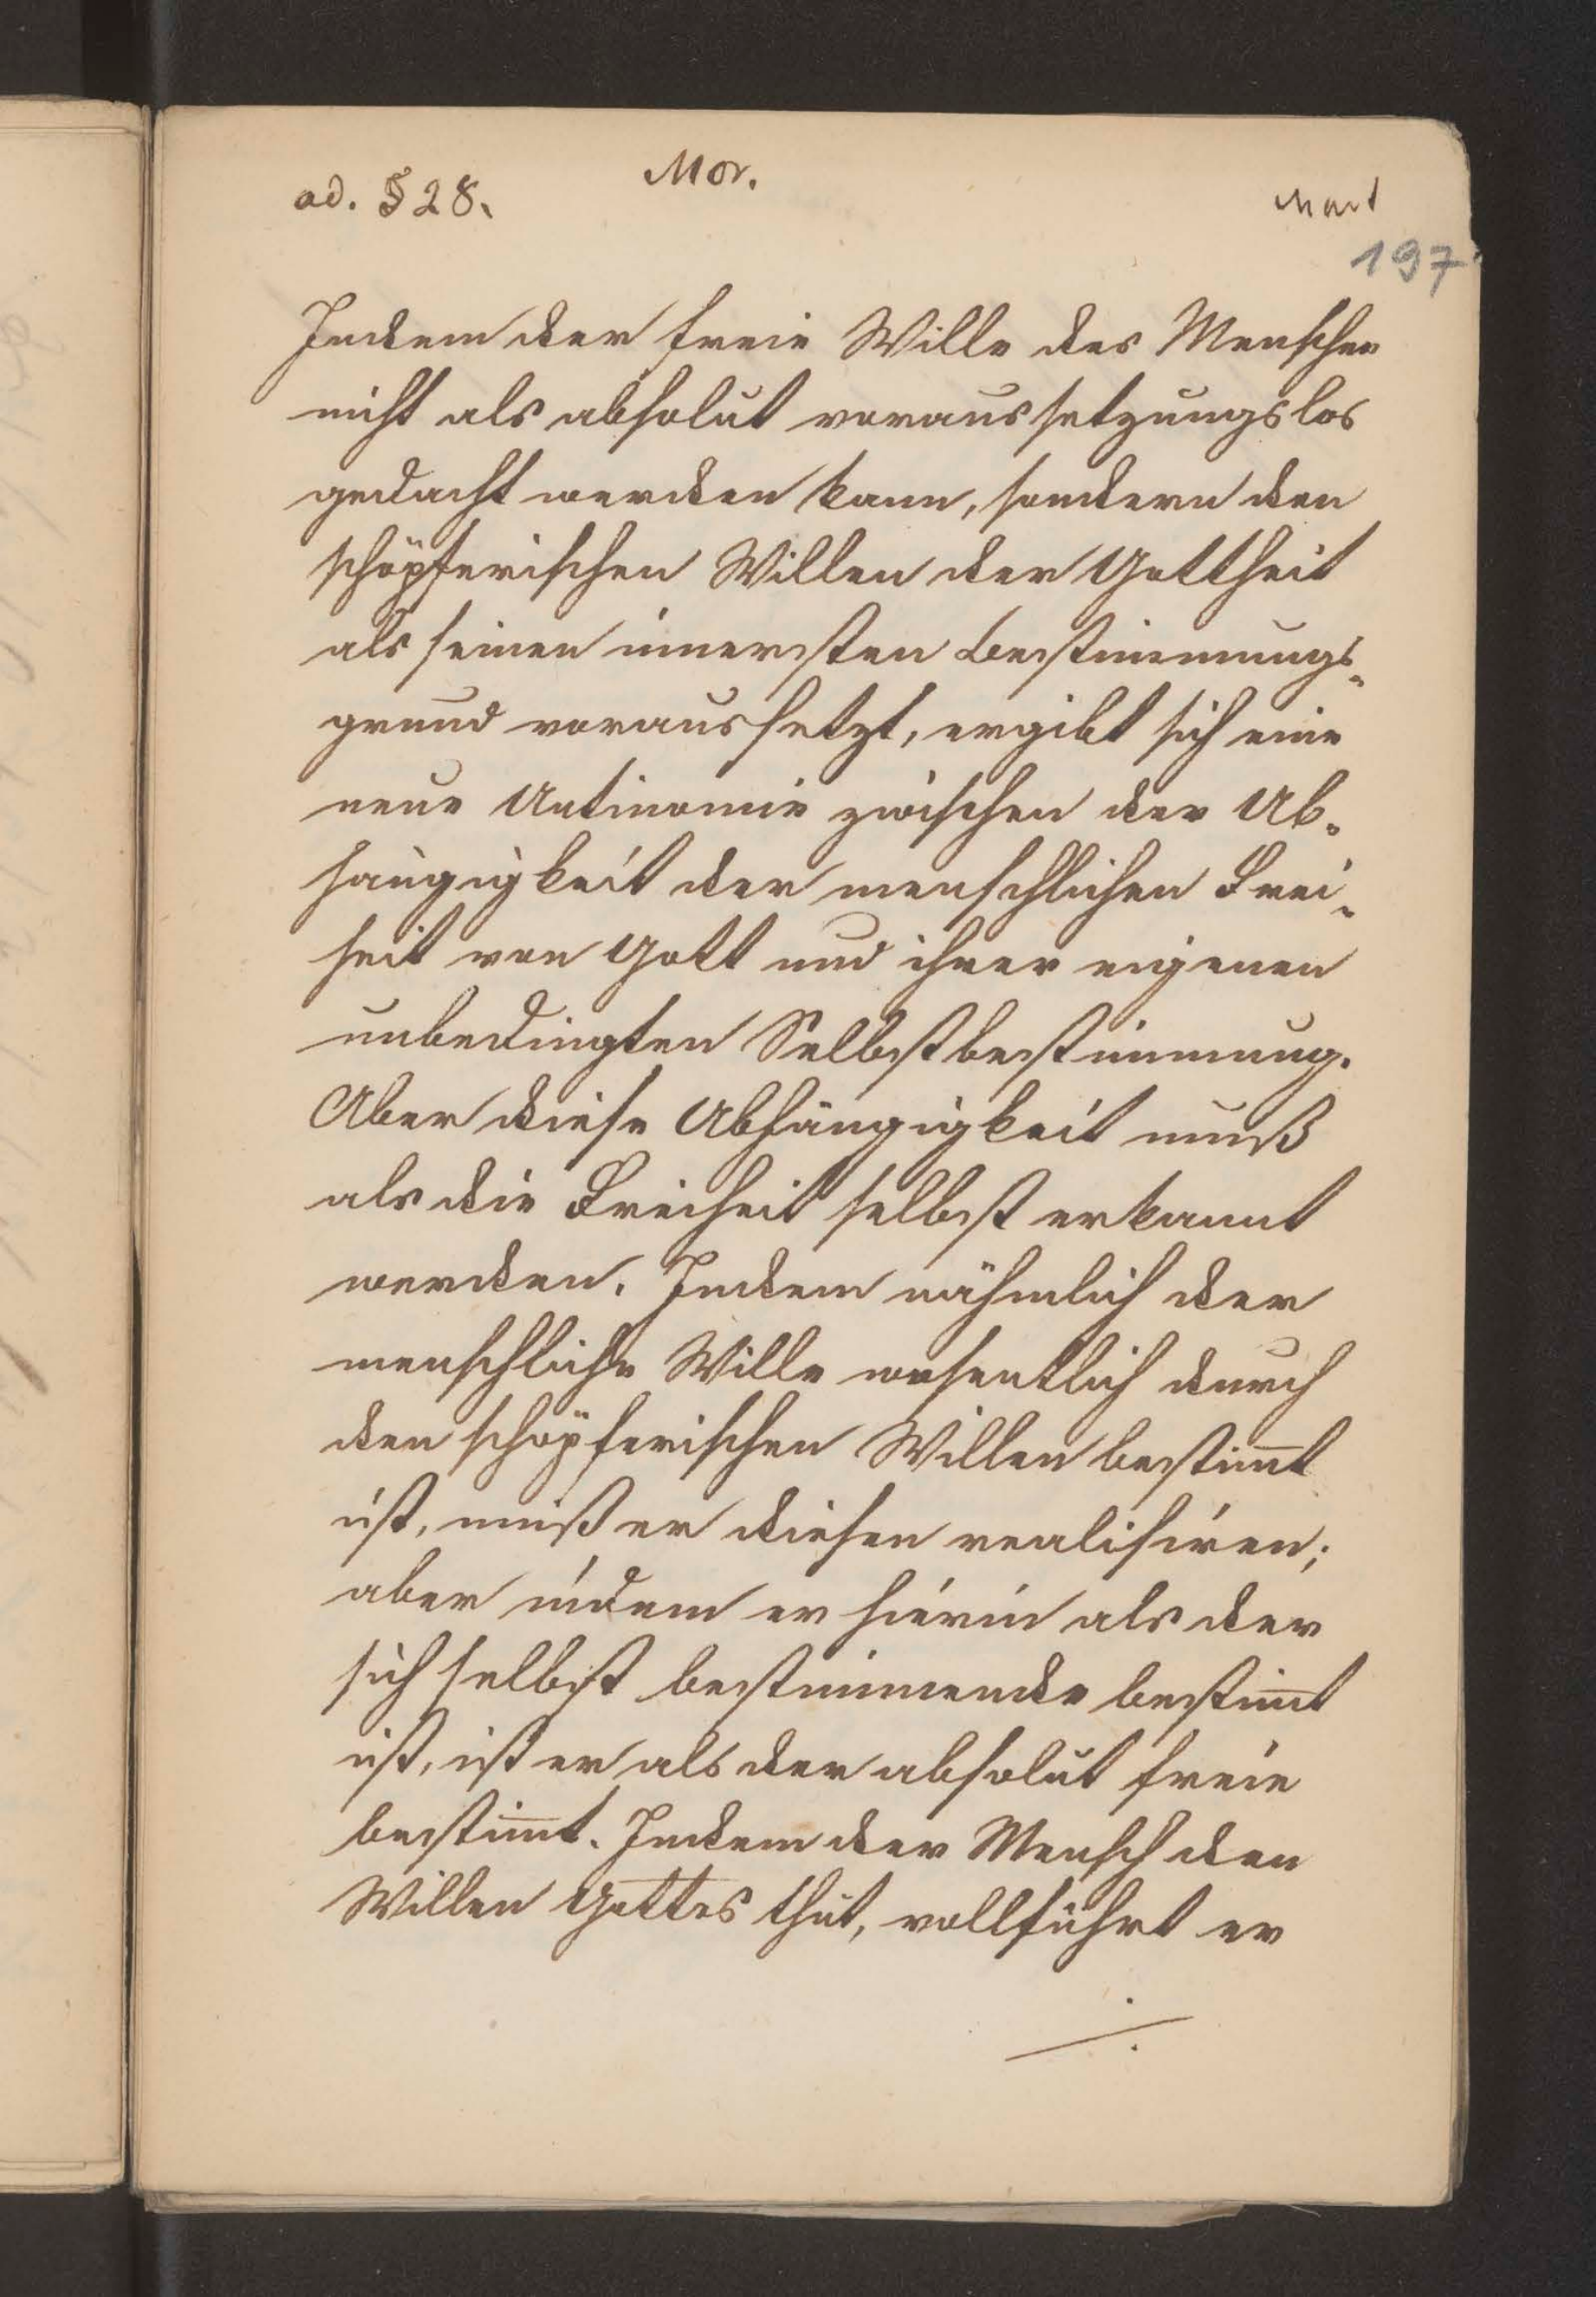 ad. § 28.
Mor.
Mart
197
Indem der freie Wille des Menschen
nicht als absolut voraussetzungslos
gedacht werden kann, sondern den
schöpferischen Willen der Gottheit
als seinen innersten Bestimmungs-
grund voraussetzt, ergibt sich eine
neue Antinomie zwischen der Ab-
hängigkeit der menschlichen Frei-
heit von Gott und ihrer eigenen
unbedingten Selbstbestimmung.
Aber diese Abhängigkeit muß
als die Freiheit selbst erkannt
werden. Indem nähmlich der
menschliche Wille wesentlich durch
den schöpferischen Willen bestim̅t
ist, muß er diesen realisiren;
aber indem er hierin als der
sich selbst bestimmende bestim̅t
ist, ist er als der absolut freie
bestim̅t. Indem der Mensch den
Willen Gottes thut, vollführt er
./.